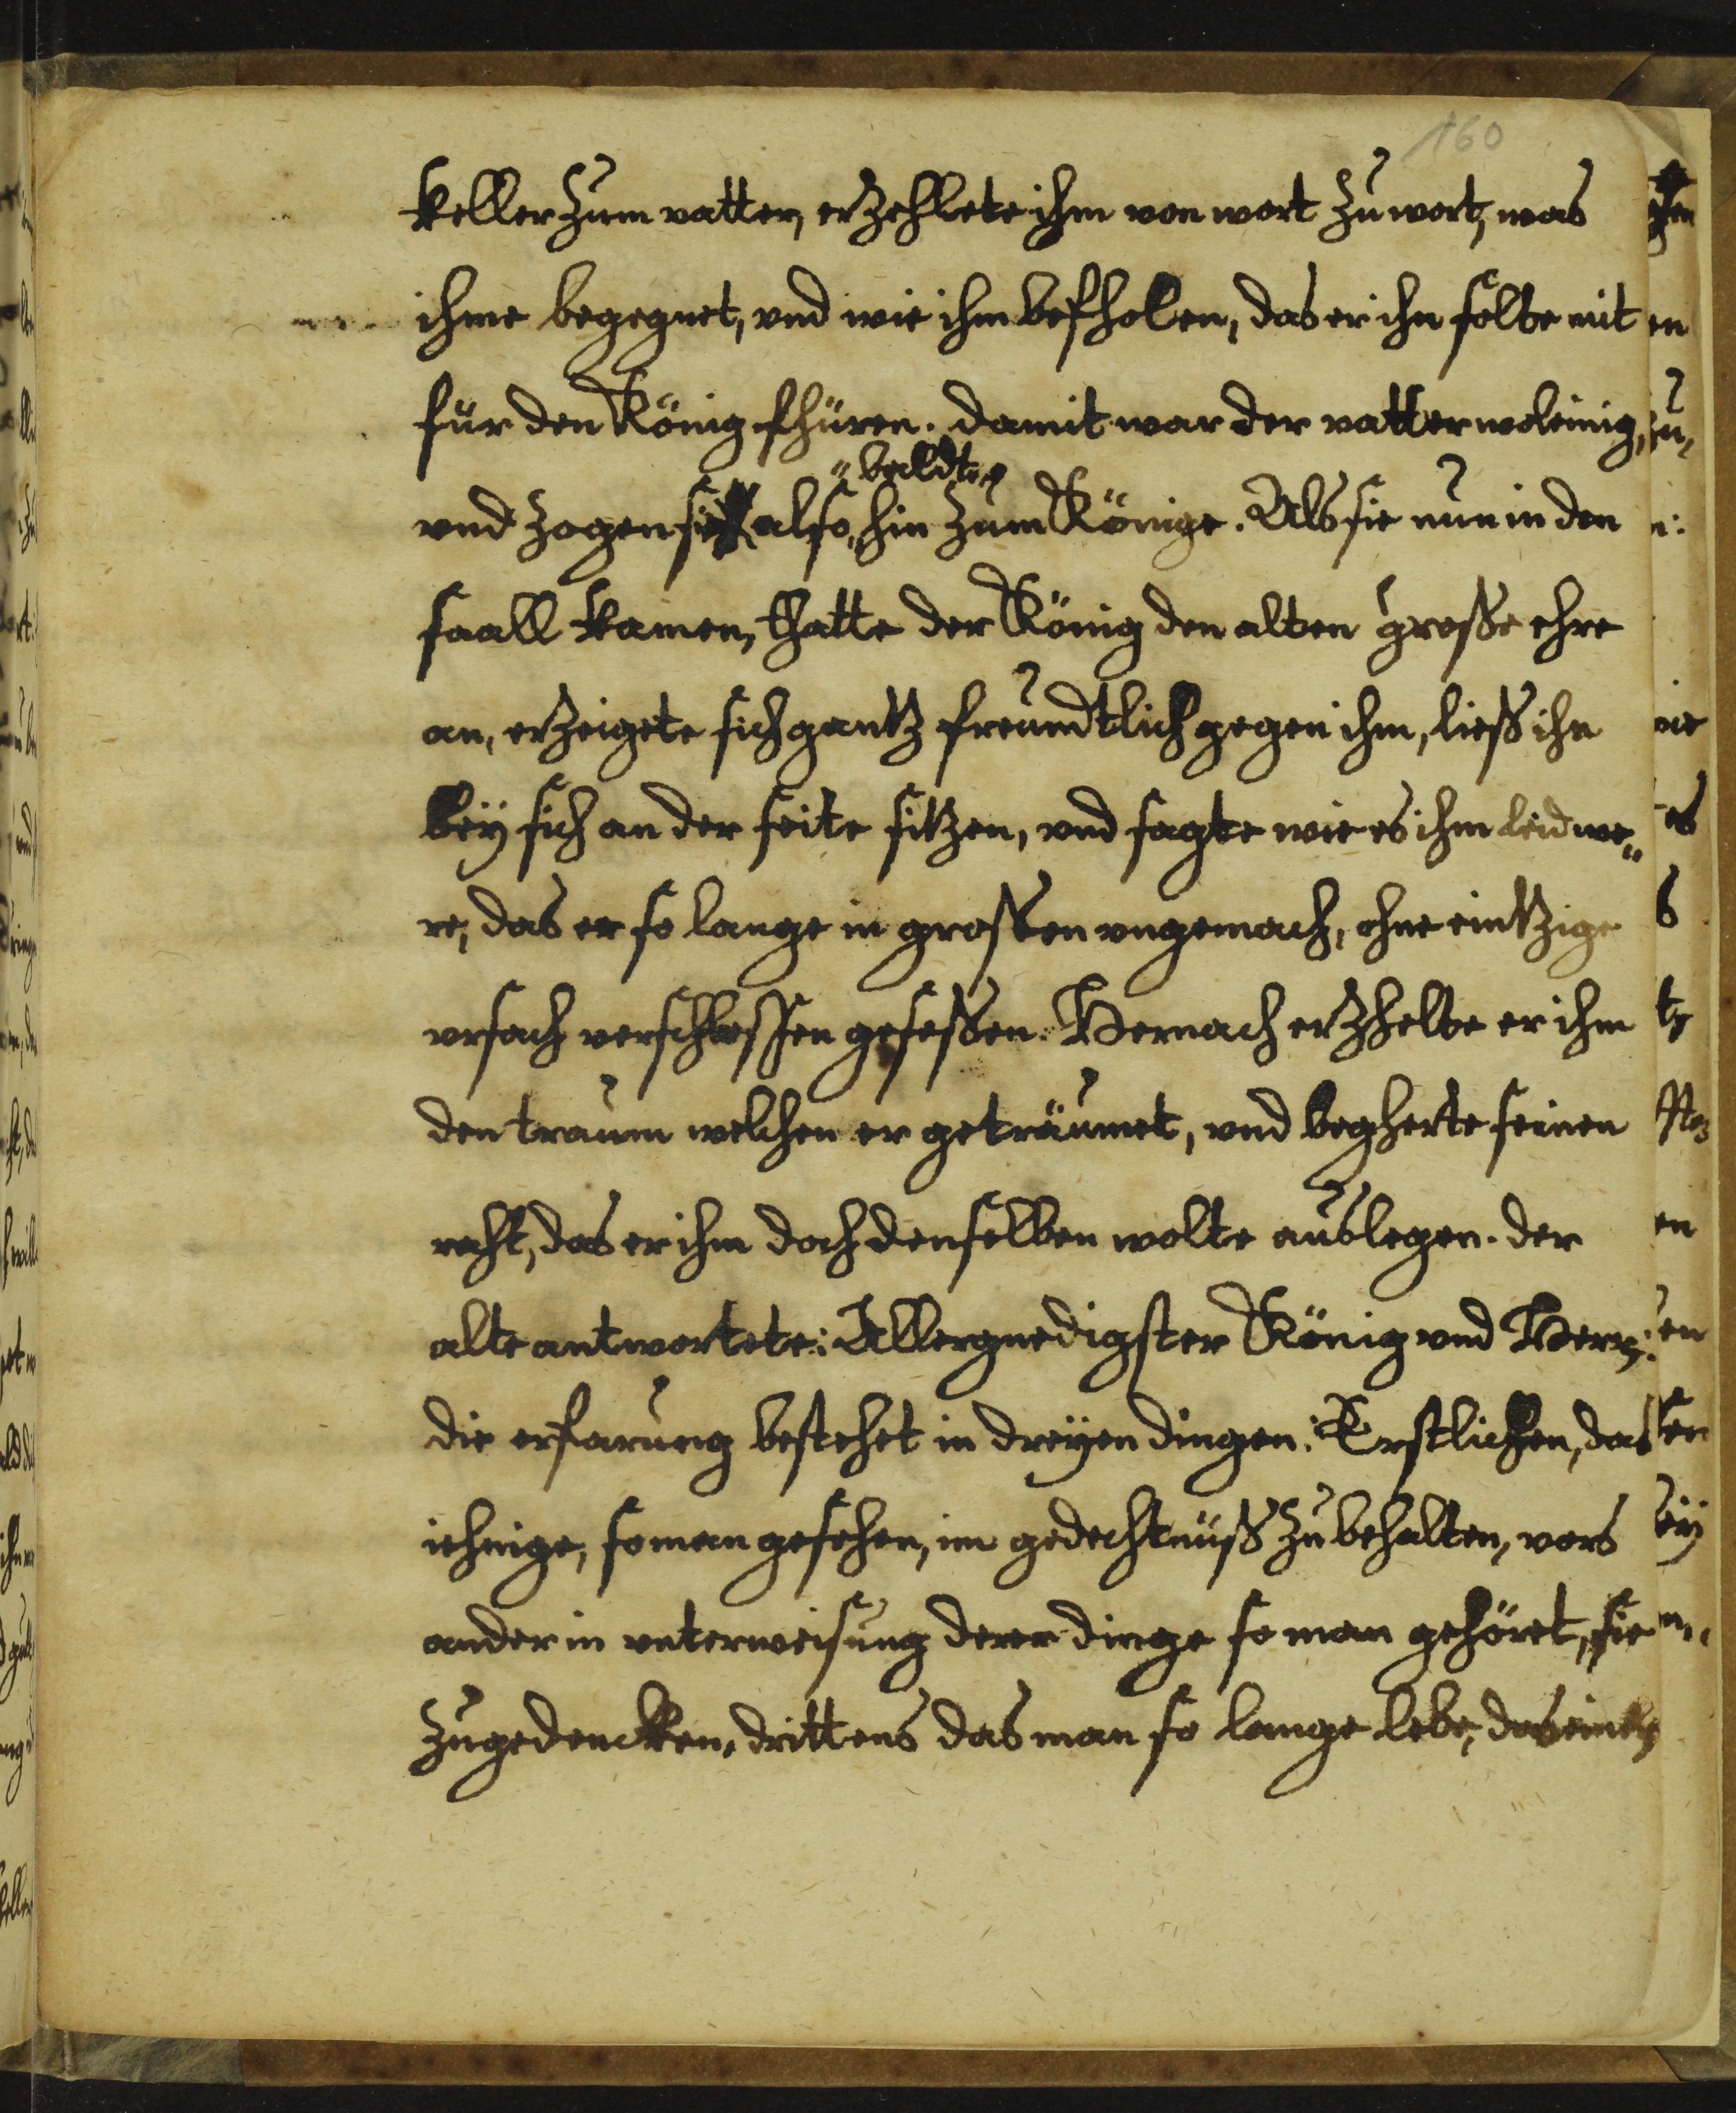 160
keller zum vatter, erzehlete ihm von wort zu wort, was
ihme begegnet, vnd wie ihm befholen, das er ihn solte mit
für den König fhüren. damit war der vatter woleinig,
baldt
vnd zogen sie also hin zum Könige. Als sie nun in den
saall kamen, thatte der König den alten große ehre
an, erzeigete sich gantz freundtlich gegen ihm, ließ ihn
bey sich an der seite sitzen, vnd sagte wie es ihm leid we„
re, das er so lange in großen vngemach, ohne eintzige
vrsach verschlossen geseßen. Hernach erzhelte er ihm
den traum welchen er geträumet, vnd begherte seinen
raht, das er ihm doch denselben wolte auslegen. der
alte antwortete: Allergnedigster König vnd Herr:
die erfarung bestehet in dreyen dingen: Erstlichen, das
iehnige, so man gesehen, im gedechtnüß zu behalten, vors
ander in vnterweisung derer dinge so man gehöret, sie
zugedencken, drittens das man so lange lebe, das